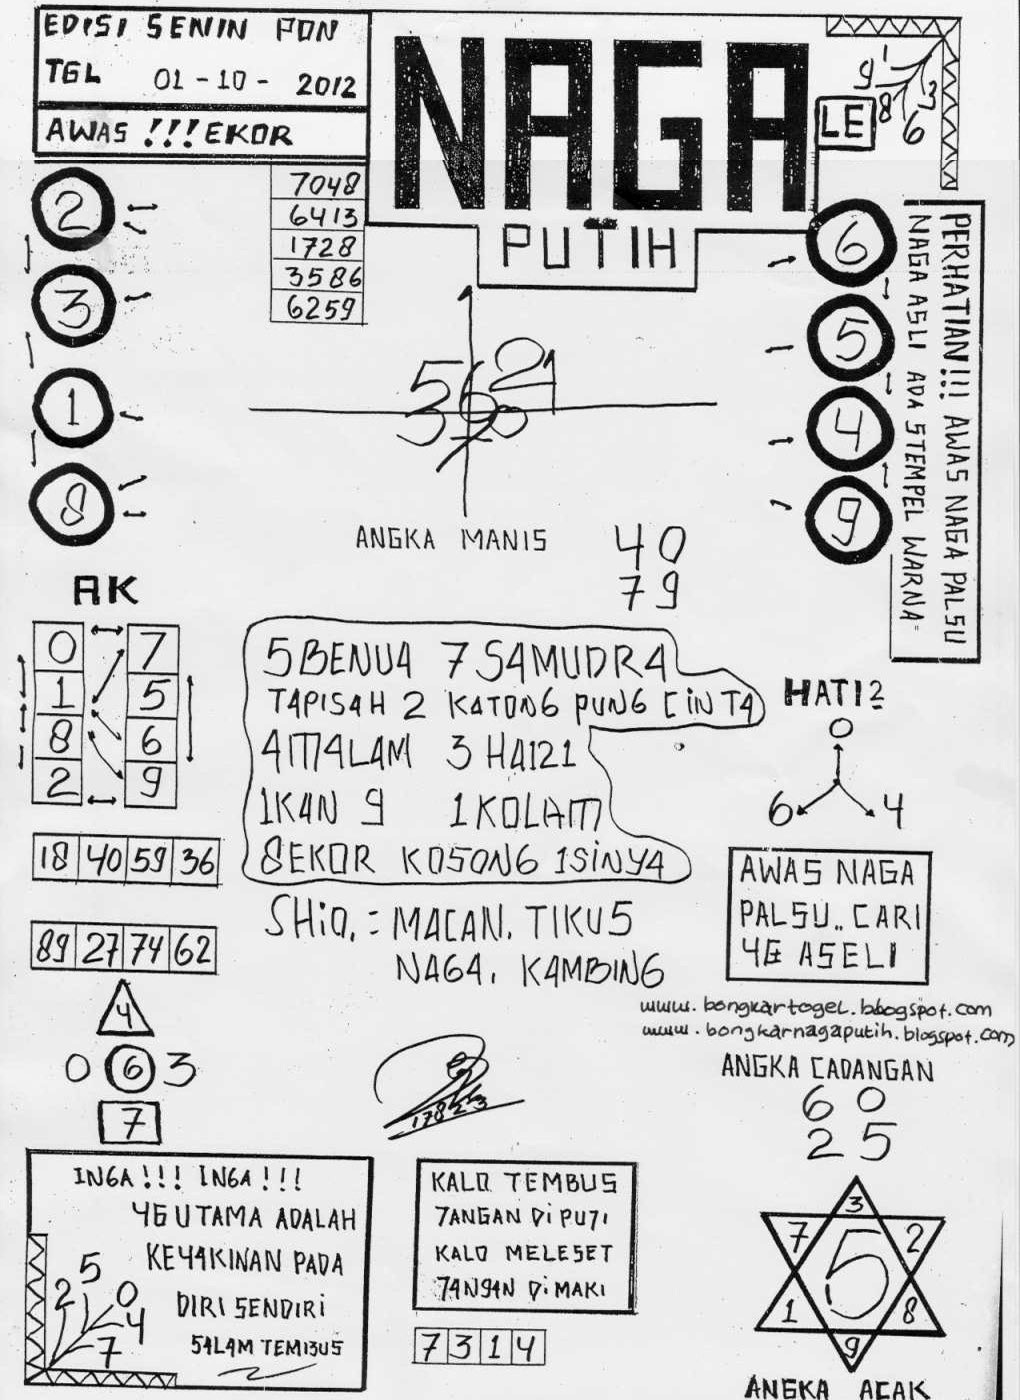 EDISI SENIN PON
TGL 01-10-2012
AWAS !!! EKOR
NAGA
PUTIH
LE
9 1 3
8 6
7048
6413
1728
3586
6259
2
3
1
8
6
5
4
9
PERHATIAN!!! AWAS NAGA PALSU
NAGA ASLI ADA STEMPEL WARNA
ANGKA MANIS
40
79
AK
0 7
1 5
8 6
2 9
18 40 59 36
89 27 74 62
4
0 6 3
7
5BENU4 7 S4MUDR4
T4PIS4H 2 K4TON6 PUN6 CiNT4
4M4L4M 3 H4I21
1K4N 9 1KOL4M
8EKOR KOSON6 1SiNY4
SHiO. = MACAN. TIKU5
NAG4. KAMBING
HATI2
0
6 4
AWAS NAGA
PALSU.. CARI
YG ASELI
www.bongkartogel.blogspot.com
www.bongkarnagaputih.blogspot.com
ANGKA CADANGAN
60
25
17825
INGA!!! INGA!!!
YG UTAMA ADALAH
KEY4KINAN PADA
DIRI SENDIRI
S4L4M TEMBUS
2 5 0
4
7
KALO TEMBUS
7ANGAN DiPU7I
KALO MELESET
74NG4N DiMAKI
7 3 1 4
3
7 5 2
1 8
9
ANGKA ACAK